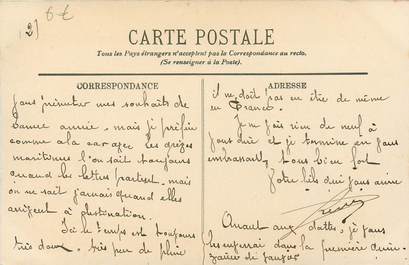 2) 6 €
CARTE POSTALE
Tous les Pays étrangers n'acceptent pas la Correspondance au recto.
(Se renseigner à la Poste).
CORRESPONDANCE
vous présenter mes souhaits de
bonne année, mais je préfère
comme
maritimes l'on sait toujours
quand les lettres partent, mais
on ne sait jamais quand elles
arrivent à destination.
Ici le temps est toujours
très doux, très peu de pluie
ADRESSE
il ne doit pas en être de même
en France.
Je ne vois rien de neuf à
vous dire et je termine en vous
embrassant tous bien fort
Votre fils qui vous aime
Quant aux dattes, je vous
les enverrai dans la première quin-
zaine de janvier